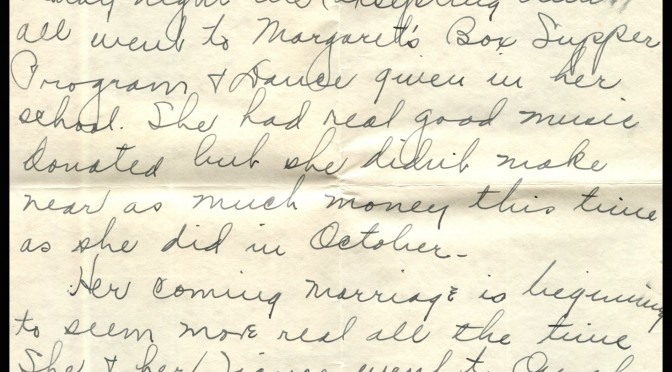 night we
all went to Margaret's Box Supper
Program & Dance given in her
school. She had real good music
donated but she didn't make
near as much money this time
as she did in October -
Her coming marriage is beginning
to seem more real all the time
She & her went to